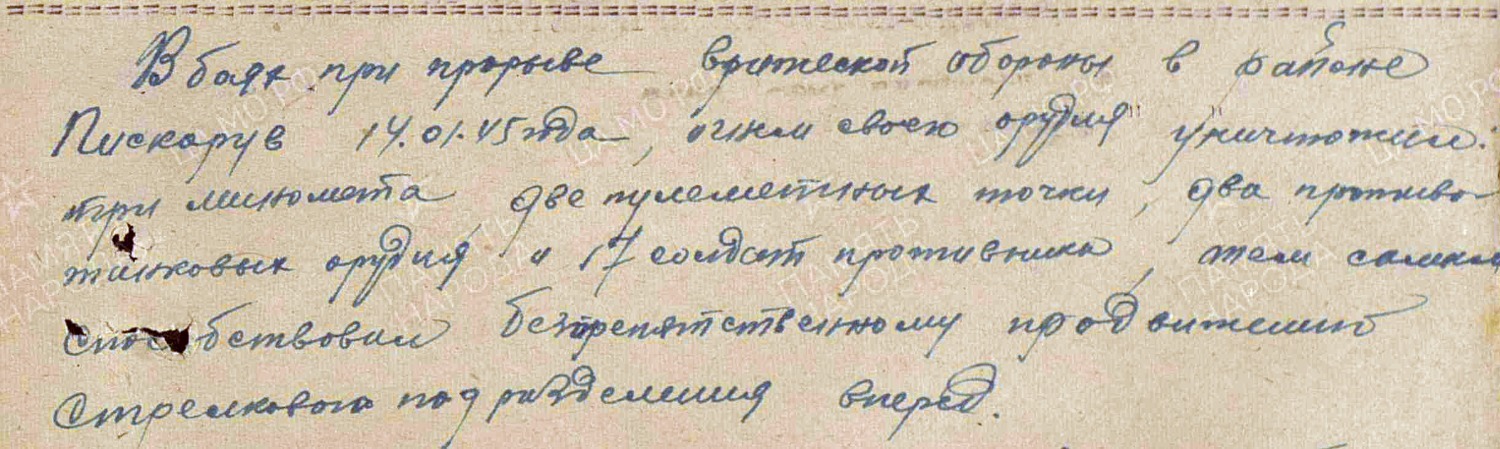 В боях при прорыве вражеской обороны в районе
Пискарув 14.01.45 года, огнем своего орудия уничтожил:
три миномета, две пулеметных точки, два противо-
танковых орудия и 17 солдат противника, тем самым
способствовал безпрепятственному продвижению
стрелкового подразделения вперед.